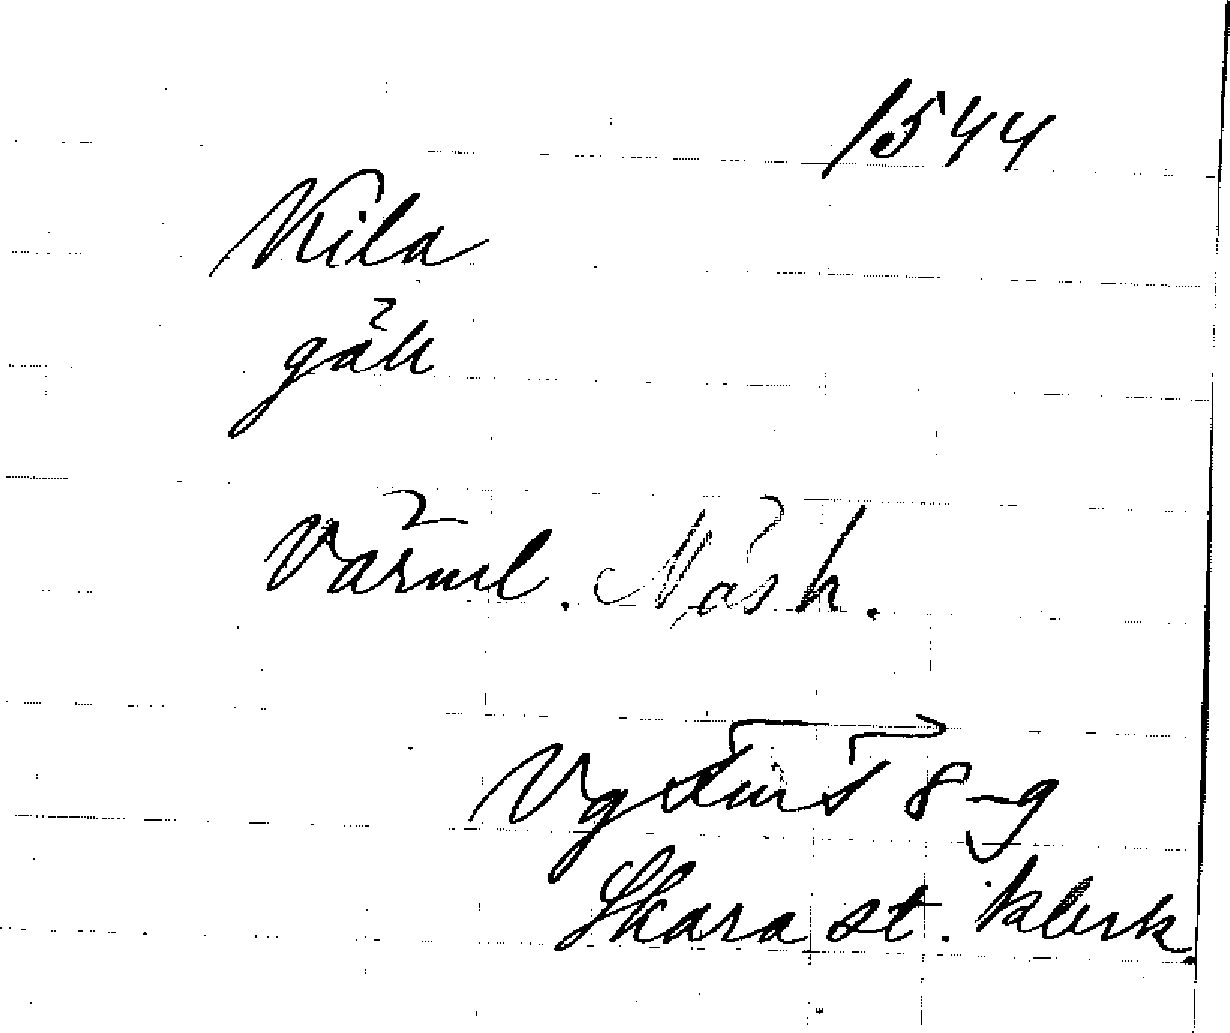 1544
Kila
gäll
Värml. Näs h.
Vg 8-9
Skara st. klerk.